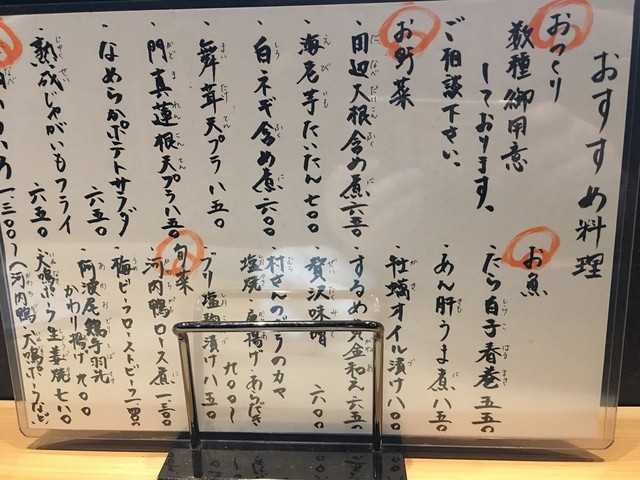 おすすめ料理
おつくり
数種御用意
しております。
ご相談下さい。
お野菜
田辺大根含め煮 六五〇
海老芋たいたん 七〇〇
白ネギ含め煮 六〇〇
舞茸天プラ 八五〇
門真蓮根天プラ 八五〇
なめらかポテトサラダ
六五〇
熟成じゃがいもフライ
六五〇
お魚
たら白子春巻 五五〇
あん肝うま煮 八五〇
牡蠣オイル漬け 八〇〇
贅沢味噌 六〇〇
村さんのブリのカマ
塩焼・唐揚げ・あらだき
九〇〇〜
ブリ塩麹漬け 八五〇
旬菜
河内鴨ロース煮 一三〇〇
梅ビーフローストビーフ
阿波尾鶏手羽先
かわり揚げ 九〇〇
犬鳴ポーク生姜焼 七八〇
(河内鴨、犬鳴ポークなど)
一三〇〇〜